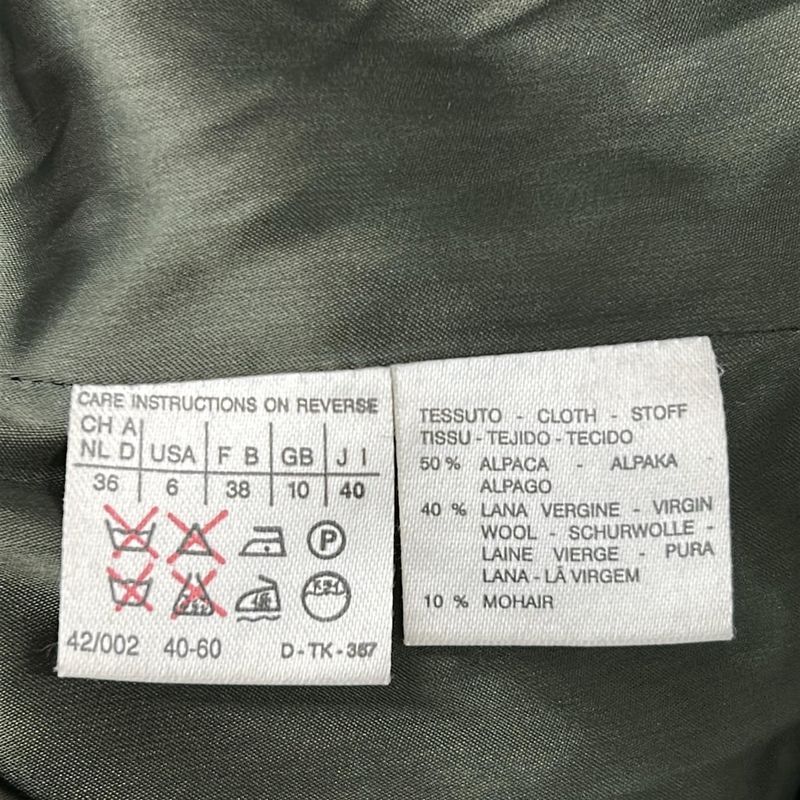 CARE INSTRUCTIONS ON REVERSE
CH A
NL D USA F B GB J I
36 6 38 10 40
P
42/002 40-60 D-TK-367
TESSUTO - CLOTH - STOFF
TISSU - TEJIDO - TECIDO
50 % ALPACA - ALPAKA
ALPAGO
40 % LANA VERGINE - VIRGIN
WOOL - SCHURWOLLE -
LAINE VIERGE - PURA
LANA - LÃ VIRGEM
10 % MOHAIR